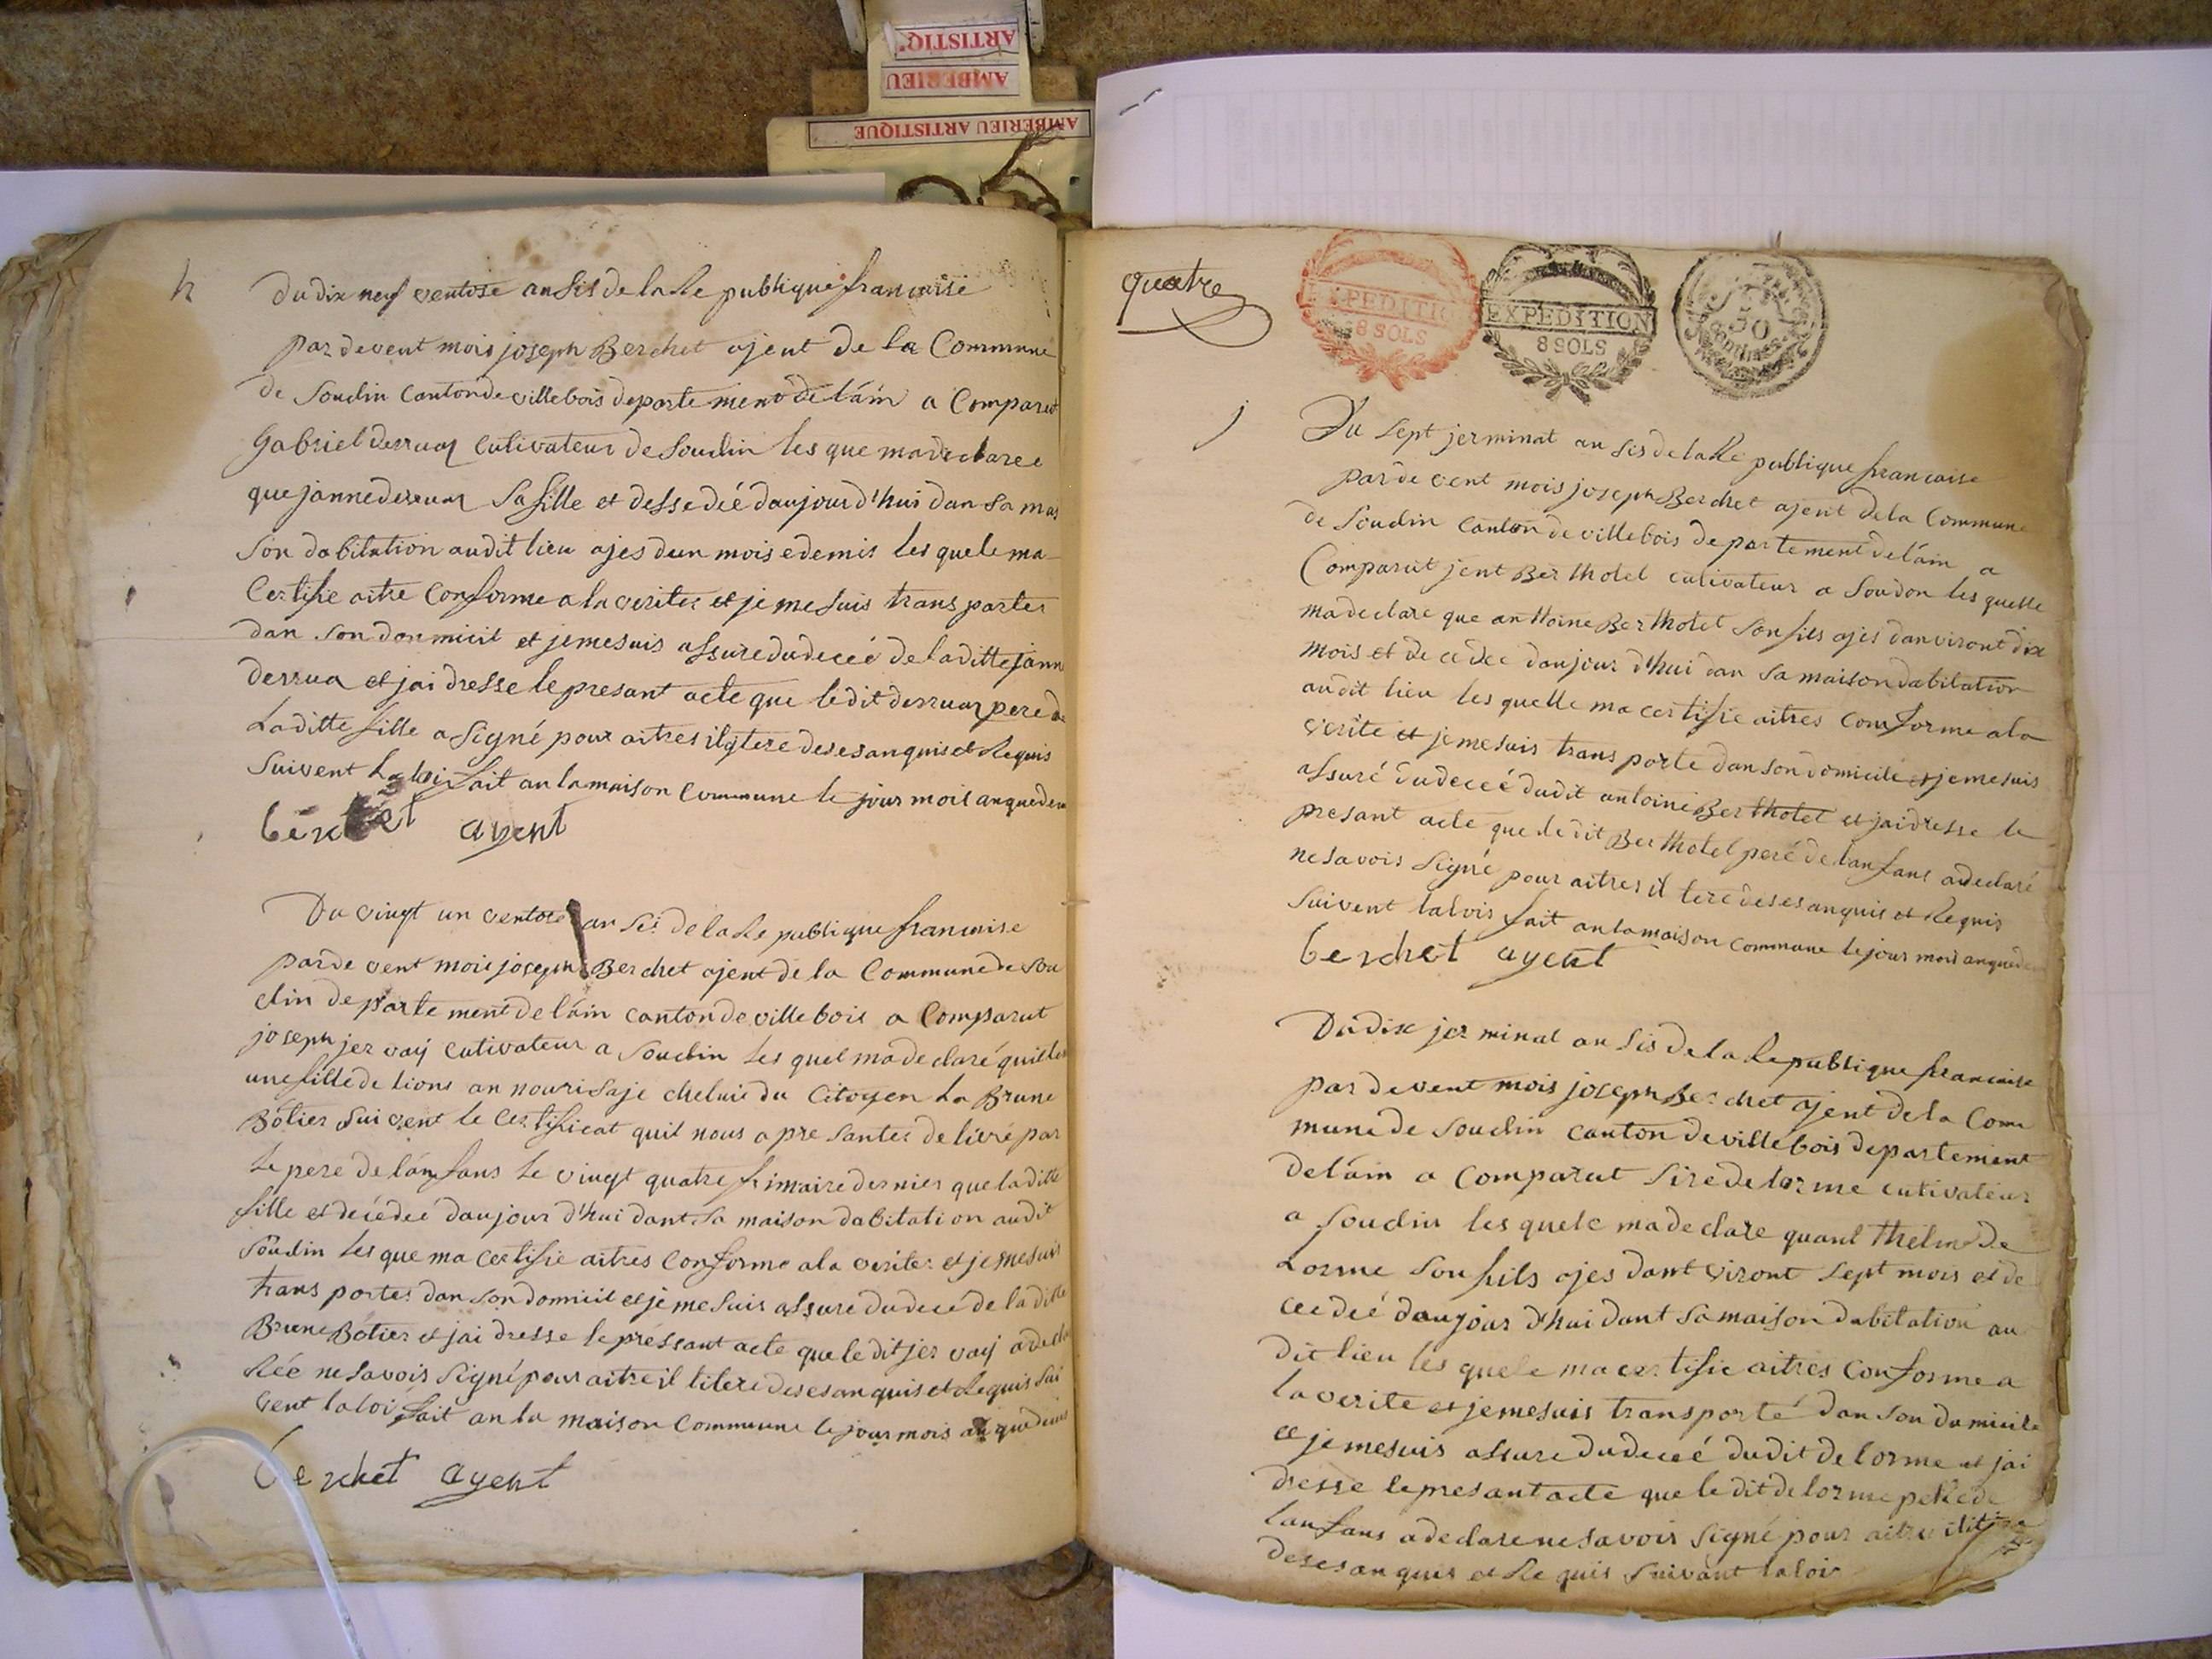 ARTISTIQ
AMBERIEU
AMBERIEU ARTISTIQUE
du dix neuf ventose an sis de la Re publique francaise
par devent mois joseph Berchet ajent de la Commune
de Soudin Canton de villebois departement de l'ain a Comparut
Gabriel derruaz Cutivateur de Soudin les que ma declaree
que janne derruaz sa fille et dessedéé daujour d'hui dan sa mai
son dabitation audit lieu ajes dun mois e demis les quele ma
Certifie aitre Conforme a la verites et je me suis trans portes
dan son dommicil et je me suis assure du deceé de la ditte jann
derrua et jai dresse le presant acte que le dit derruaz pere de
La ditte fille a Signé pour aitres il tere deses anquis et Requis
Suivent La loi fait an la maison Commune le jour mois an que de
berchet ayent
Du vingt un ventose an Sis de la Re publique francaise
par de vent mois joseph Berchet ajent de la Commune de Sou
din de parte ment de l'ain canton de villebois a Comparut
joseph jer vaÿ Cutivateur a Soudin les quel ma declaré
une fille de lions an nourisaje cheluis du Citoyen La Brune
Botier Suivent le Certificat quil nous a pre santes delivré par
le pere de l'anfans le vingt quatre frimaire dernier que la ditte
fille et decédeé daujour d'hui dant sa maison dabitation audit
Soudin les que ma certifie aitres Conforme a la vérites et je me suis
trans portes dan son dommicil et je me suis assure du decé de la ditte
Brune Botier et jai dresse le préssant acte que le dit jer vaÿ a decla
Réé ne Savois Signé pour aitre il litere deses anquis et Requis Sui
vent la loi fait an la maison Commune le jour mois an que
berchet ayent
quatre
EXPEDITION
8 SOLS
EXPEDITION
8 SOLS
50
Centimes
Du sept jerminal an sis de la Re publique francaise
par de vent mois joseph Berchet ajent de la Commune
de Soudin Canton de villebois departement de l'ain a
Comparut jent Berthotel cutivateur a Soudon les quelle
ma declare que anthoine Berthotet son fils ajes danviront dix
mois et de cedee daujour d'hui dan sa maison dabitation
audit lieu les quelle ma certifie aitres Comforme a la
verite et je me suis trans porte dan son domicile et je me suis
assuré du deceé dudit antoine Berthotet et jai dresse le
presant acte que le dit Berthotel peré de lanfans a declaré
ne savois Signé pour aitres il tere deses anquis et Requis
Suivent la lois fait an la maison Commune le jour mois an que
berchet ayent
Du dix jer minal an Sis de la Republique francaise
par devent mois joseph Berchet ajent de la Com
mune de Soudin canton de villebois departement
de l'ain a Comparut Sire de lorme cutivateur
a Soudin les quele ma declare quant thelme de
Lorme son fils ajes dant viront Sept mois et de
ceedeé daujour d'hui dant sa maison dabitation au
dit lieu les quele ma certifie aitres Conforme a
la verite et je me suis transporté dan son domicile
et je me suis assure du deceé dudit de lorme et jai
dresse le presant acte que le dit de lorme pere de
lanfans a declare ne savois Signé pour aitre
deses an quis et Re quis Suivant la loi